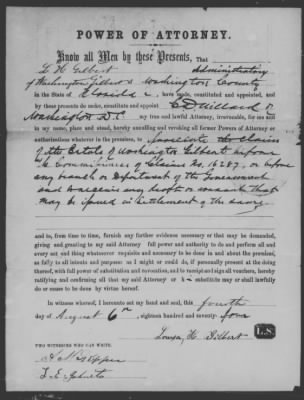 POWER OF ATTORNEY.
Know all Men by these Presents, That
L. H. Gilbert Administratrix
of Washington Gilbert Washington County
in the State of Florida, have made, constituted and appointed, and
by these presents do make, constitute and appoint
Washington D.C. my true and lawful Attorney, irrevocable, for me and
in my name, place and stead, hereby annulling and revoking all former Powers of Attorney or
authorizations whatever in the premises, to prosecute the Claim
of the Estate of Washington Gilbert before
the Commissioners of Claims No. 16287, or before
any branch or Department of the Government
and to receive any draft or warrant that
may be issued in settlement of the same
and to, from time to time, furnish any further evidence necessary or that may be demanded,
giving and granting to my said Attorney full power and authority to do and perform all and
every act and thing whatsoever requisite and necessary to be done in and about the premises,
as fully to all intents and purposes as I might or could do, if personally present at the doing
thereof, with full power of substitution and revocation, and to receipt and sign all vouchers, hereby
ratifying and confirming all that my said Attorney or substitute may or shall lawfully
do or cause to be done by virtue hereof.
In witness whereof, I hereunto set my hand and seal, this fourth
day of August 6th, eighteen hundred and seventy-four
Louisa, H Gilbert L.S.
TWO WITNESSES WHO CAN WRITE.